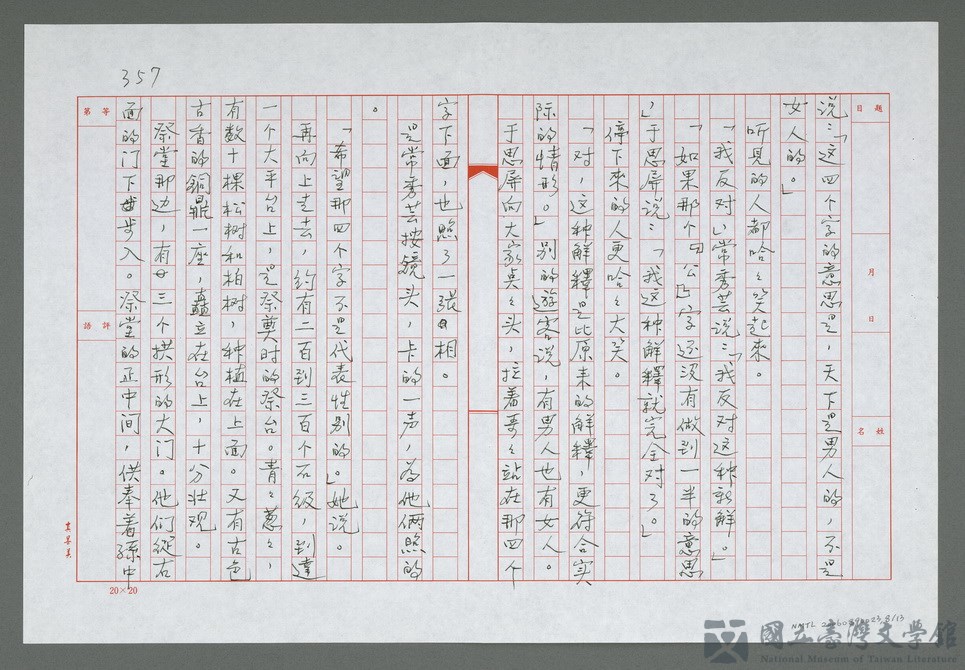 357
題目
月
日
姓名
第
等
評語
說：「这四个字的意思是，天下是男人的，不是
女人的。」
听見的人都哈々笑起來。
「我反对」常秀芸说：「我反对这种新解。」
「如果那个『公』字还没有做到一半的意思
」于思屏说：「我这种解釋就完全对了。」
停下来的人更哈々大笑。
「对，这种解釋是比原来的解釋，更符合实
际的情形。」别的遊客说，有男人也有女人。
于思屏向大家点々头，拉着哥々站在那四个
字下面，也照了一張相。
是常秀芸按镜头，卡的一声，為他俩照的
。
「希望那四个字不是代表性别的。」她说。
再向上走去，约有二百到三百个石级，到達
一个大平台上，是祭奠时的祭台。青々蔥々，
有数十棵松树和柏树，种植在上面。又有古色
古香的銅鼎一座，矗立在台上，十分壮观。
祭堂那边，有三个拱形的大门。他们從右
面的门下步入。祭堂的正中间，供奉着孫中
20×20
NMTL
國立臺灣文學館
National Museum of Taiwan Literature